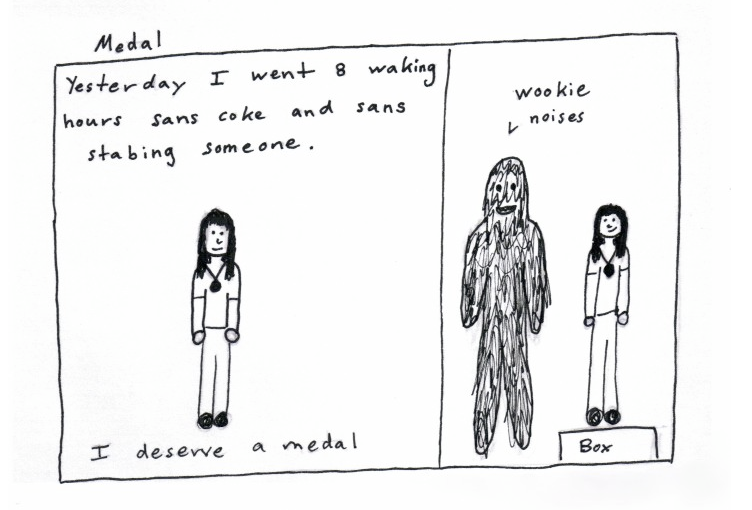 Medal
Yesterday I went 8 waking
hours sans coke and sans
stabing someone.
I deserve a medal
wookie
noises
Box